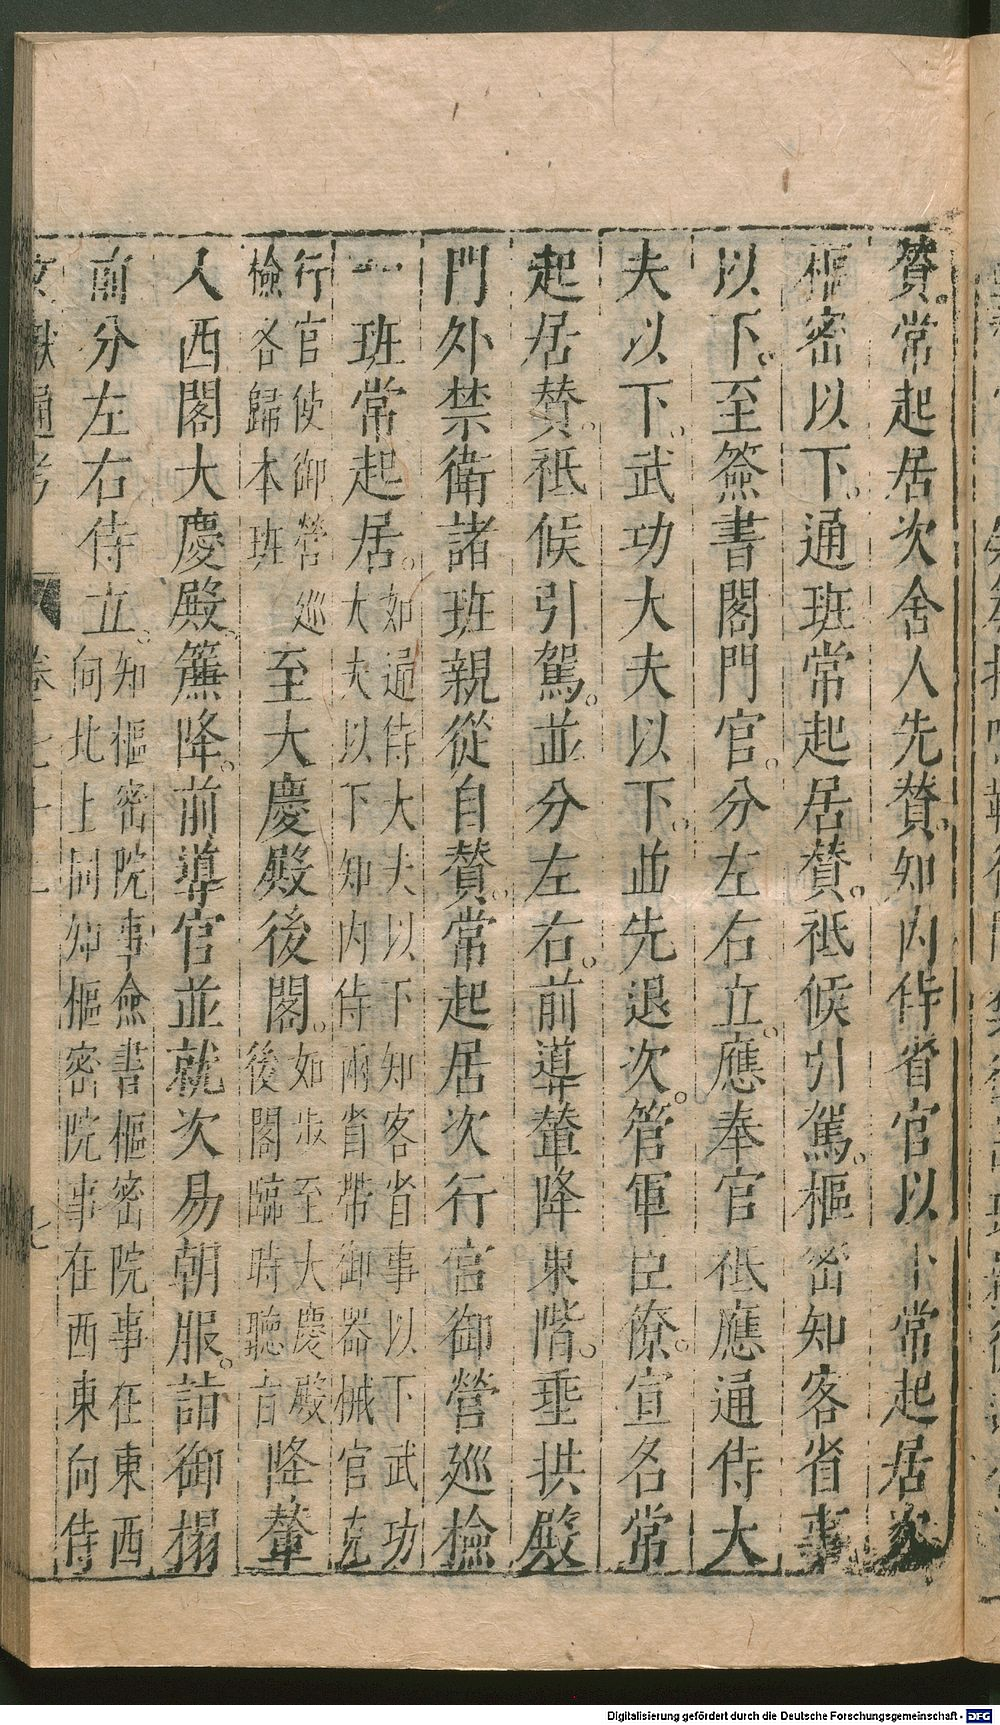 贊。常起居次舍人先贊。知内侍省官以下常起居次
樞密以下。通班常起居贊。祗候引駕。樞密知客省事
以下。至簽書閣門官。分左右立。應奉官祗應通侍大
夫以下。武功大夫以下。並先退次。管軍臣僚。宣名常
起居贊。祗候引駕。並分左右。前導輦降東階。垂拱殿
門外禁衛諸班親從自贊。常起居次行宫御營巡檢
一班常起居。如通侍大夫以下知客省事以下武功
大夫以下知内侍兩省帶御器械官充
行宫使御營巡
檢各歸本班
至大慶殿後閣。如步至大慶殿
後閣臨時聽旨
降輦
入西閣大慶殿簾降。前導官並就次易朝服。詣御榻
前分左右侍立。知樞密院事僉書樞密院事在東西
向北上同知樞密院事在西東向侍
文獻通考 卷七十二 七
Digitalisierung gefördert durch die Deutsche Forschungsgemeinschaft - DFG